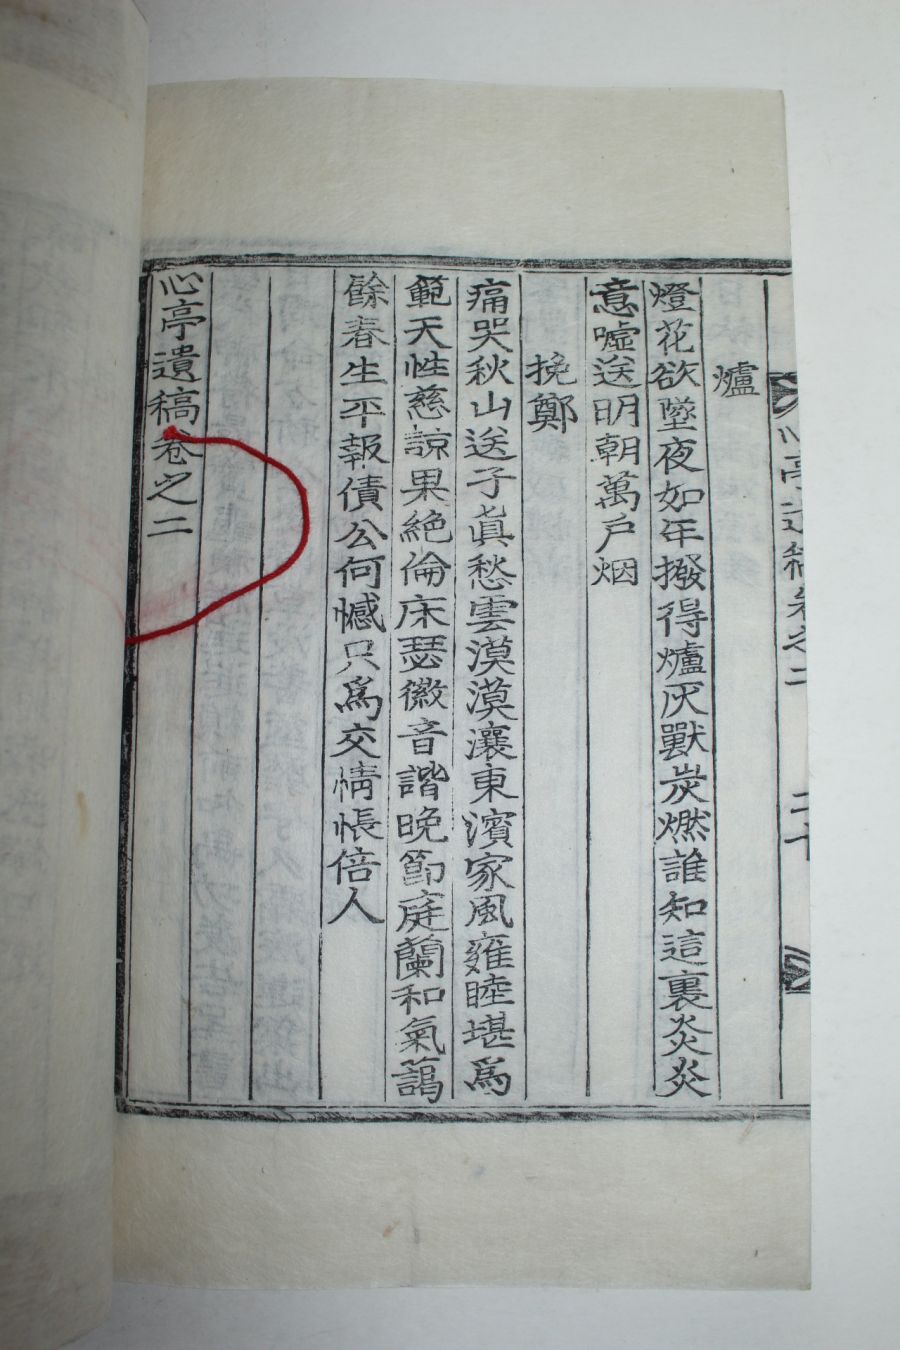 心亭遺稿卷之二
爐
燈花欲墜夜如年撥得爐灰獸炭燃誰知這裏炎炎
意噓送明朝萬戶烟
挽鄭
痛哭秋山送子眞愁雲漠漠瀼東濱家風雍睦堪爲
範天性慈諒果絶倫床瑟徽音諧晚節庭蘭和氣藹
餘春生平報債公何憾只爲交情悵倍人
心亭遺稿卷之二